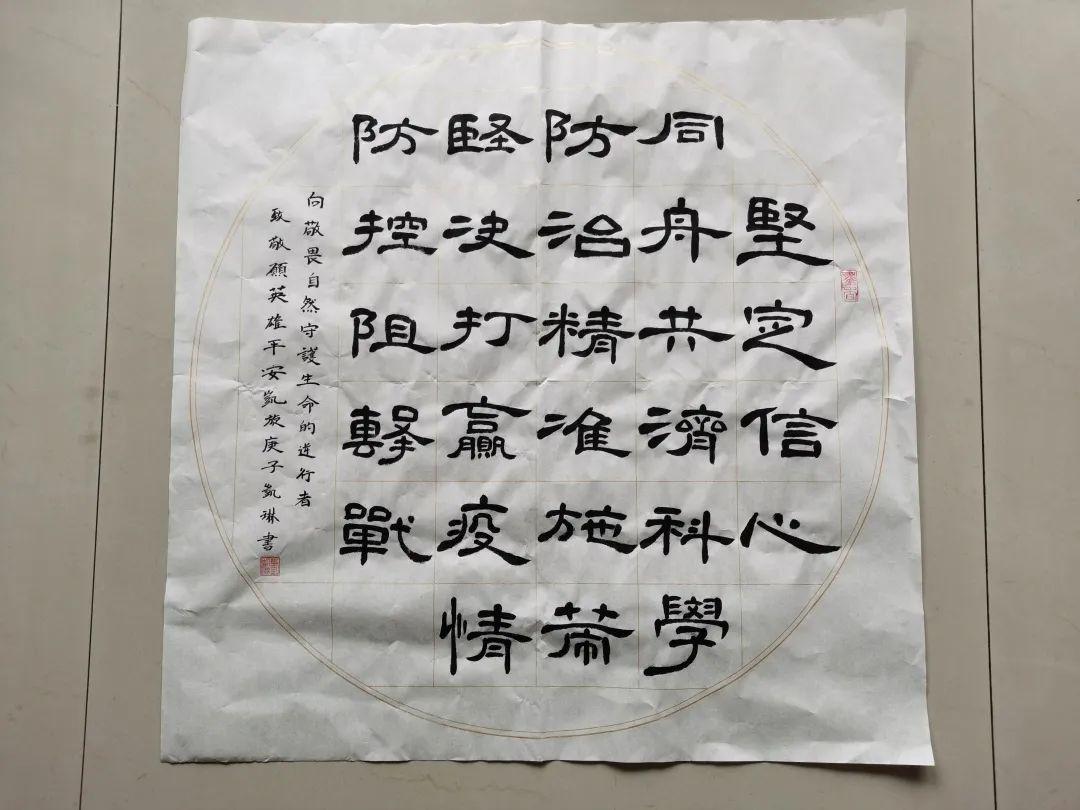 堅定信心
同舟共濟科學
防治精准施策
堅决打贏疫情
防控阻擊戰
向敬畏自然守護生命的逆行者
致敬願英雄平安凱旋庚子凱琳書